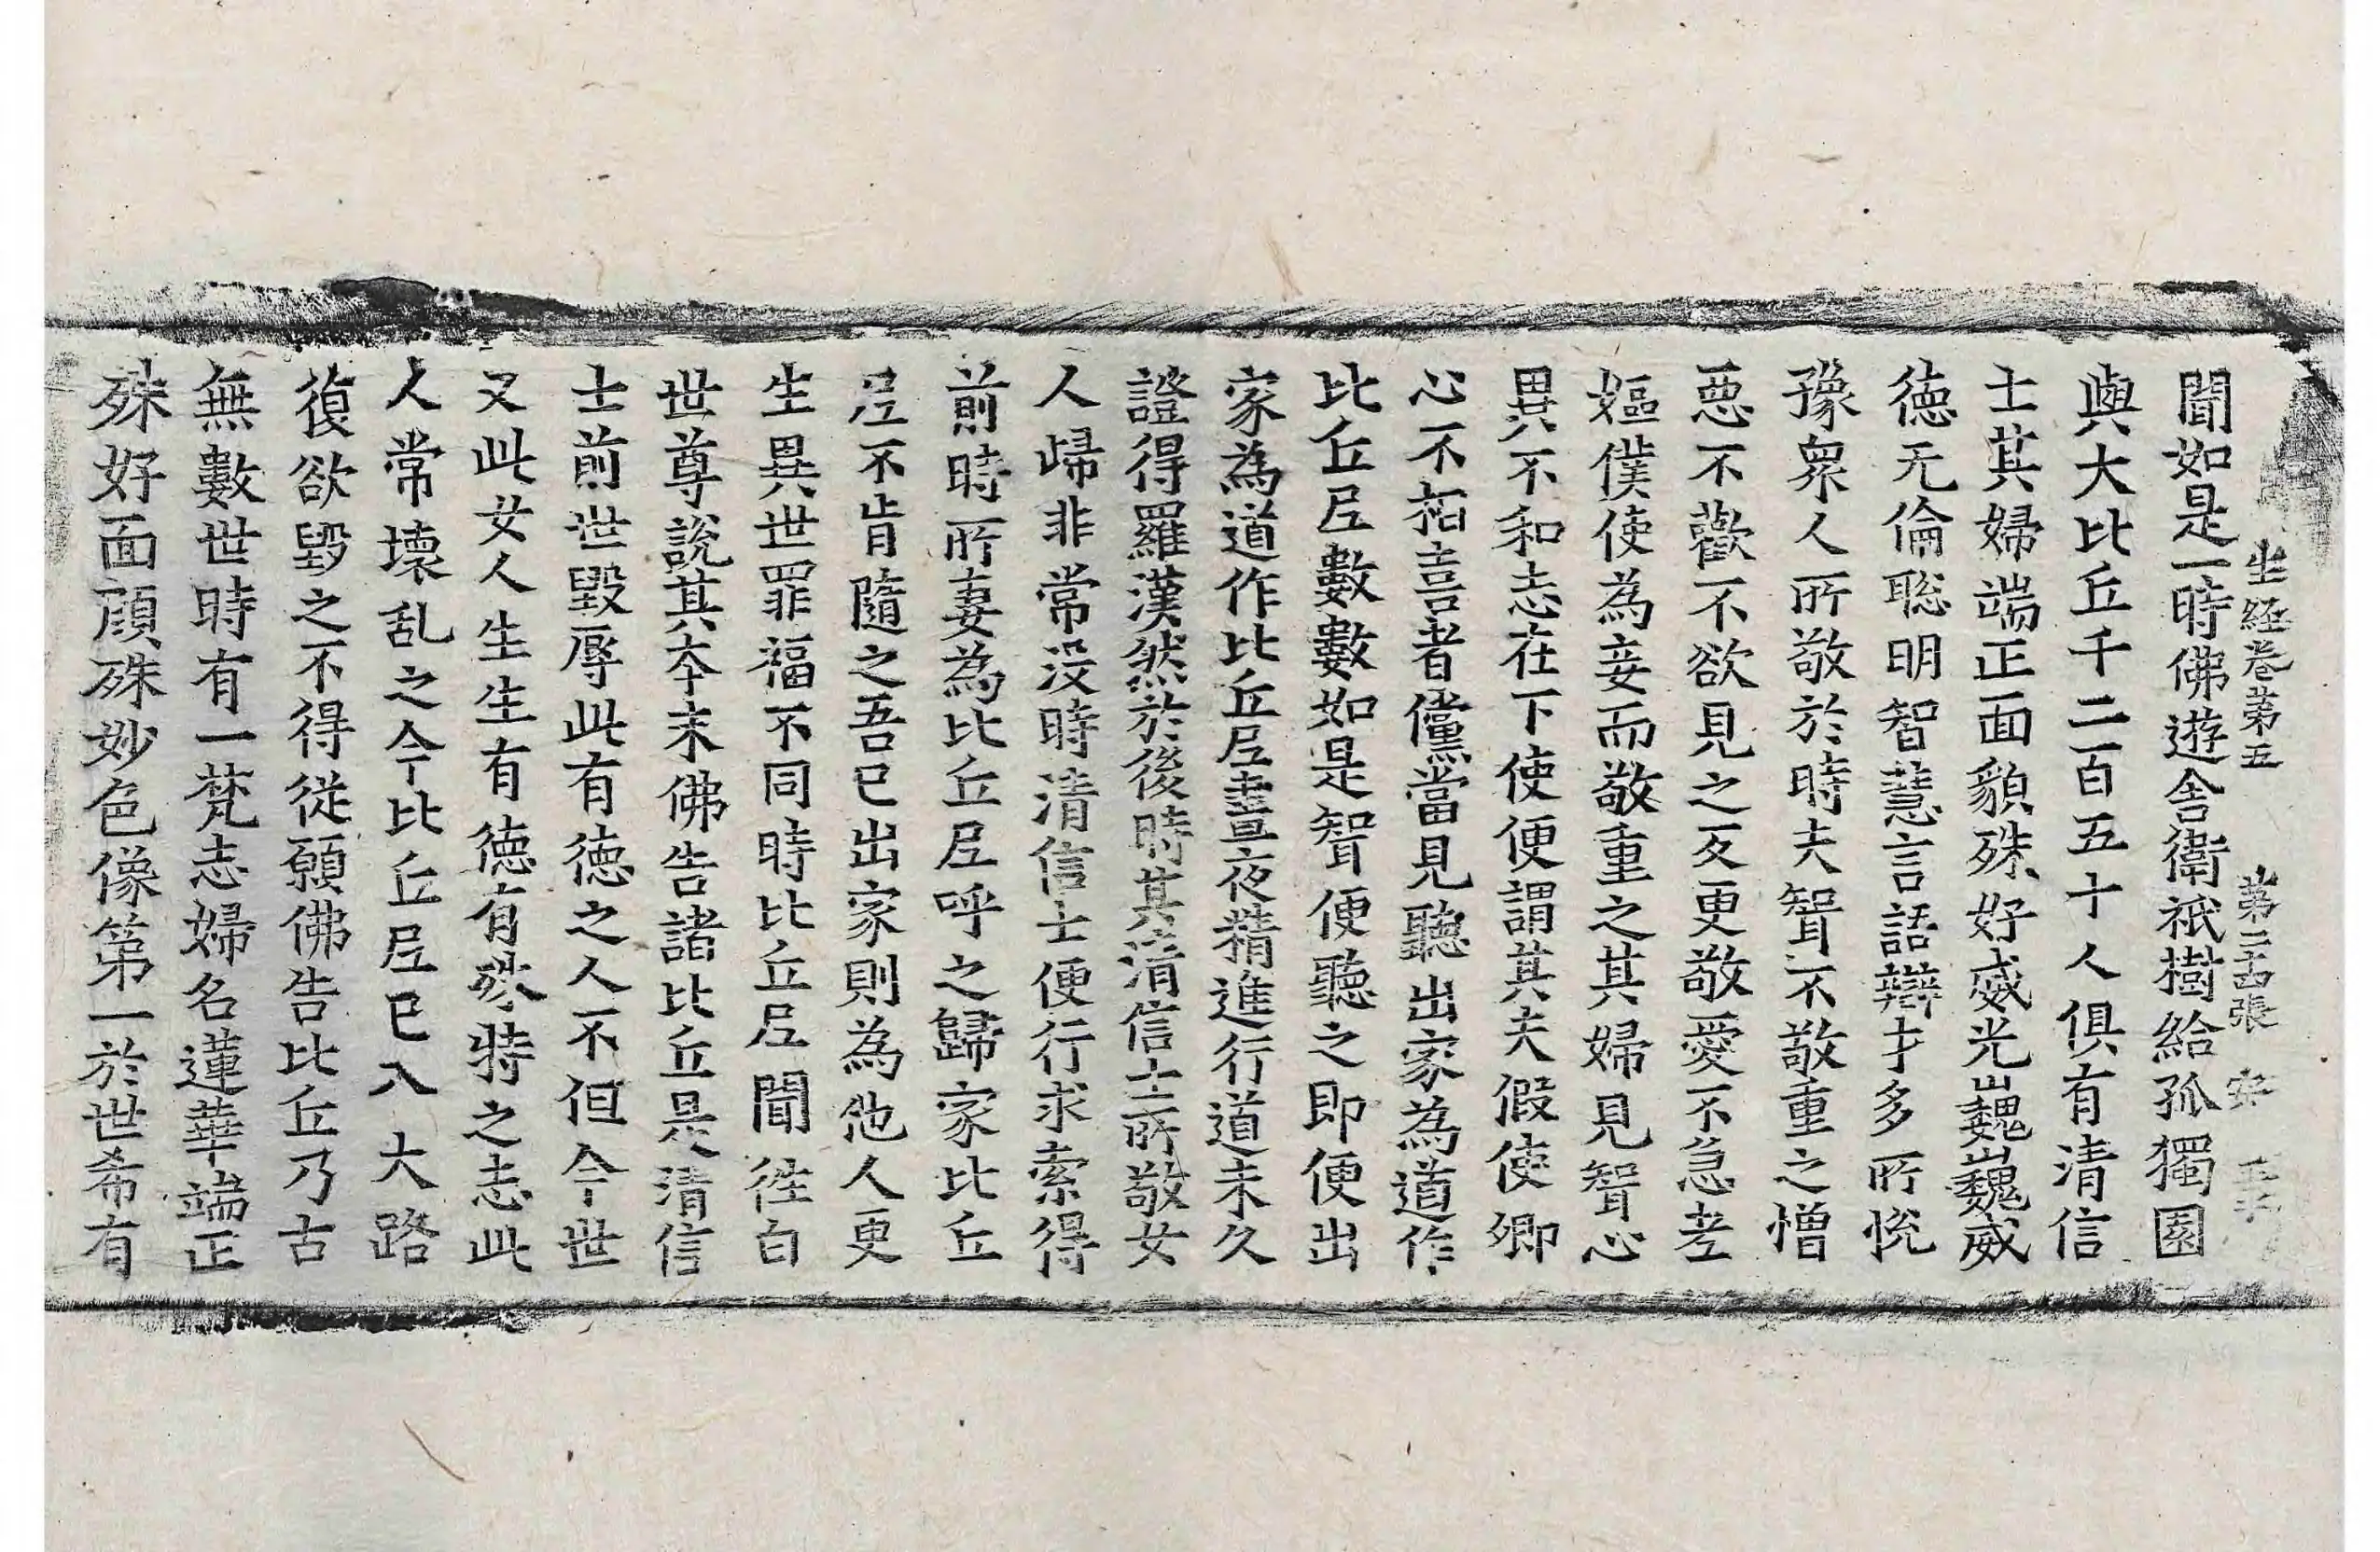 生経卷第五 第二十張 安
聞如是一時佛遊舎衛祇樹給孤獨園
與大比丘千二百五十人俱有清信
士其婦端正面貌殊好威光巍巍威
徳无倫聡明智慧言語辯才多所悅
豫衆人所敬於時夫聟不敬重之憎
惡不歡不欲見之反更敬愛不急老
嫗僕使為妾而敬重之其婦見聟心
異不和志在下使便謂其夫假使卿
心不相喜者儻當見聽出家為道作
比丘尼數數如是聟便聽之即便出
家為道作比丘尼晝夜精進行道未久
證得羅漢然於後時其清信士所敬女
人歸非常没時清信士便行求索得
前時所妻為比丘尼呼之歸家比丘
尼不肯隨之吾已出家則為他人更
生異世罪福不同時比丘尼聞徃白
世尊說其本末佛告諸比丘是清信
士前世毀辱此有徳之人不但今世
又此女人生生有徳有殊特之志此
人常壊乱之今比丘尼已入大路
復欲毀之不得從願佛告比丘乃古
無數世時有一梵志婦名蓮華端正
殊好面顔殊妙色像第一於世希有